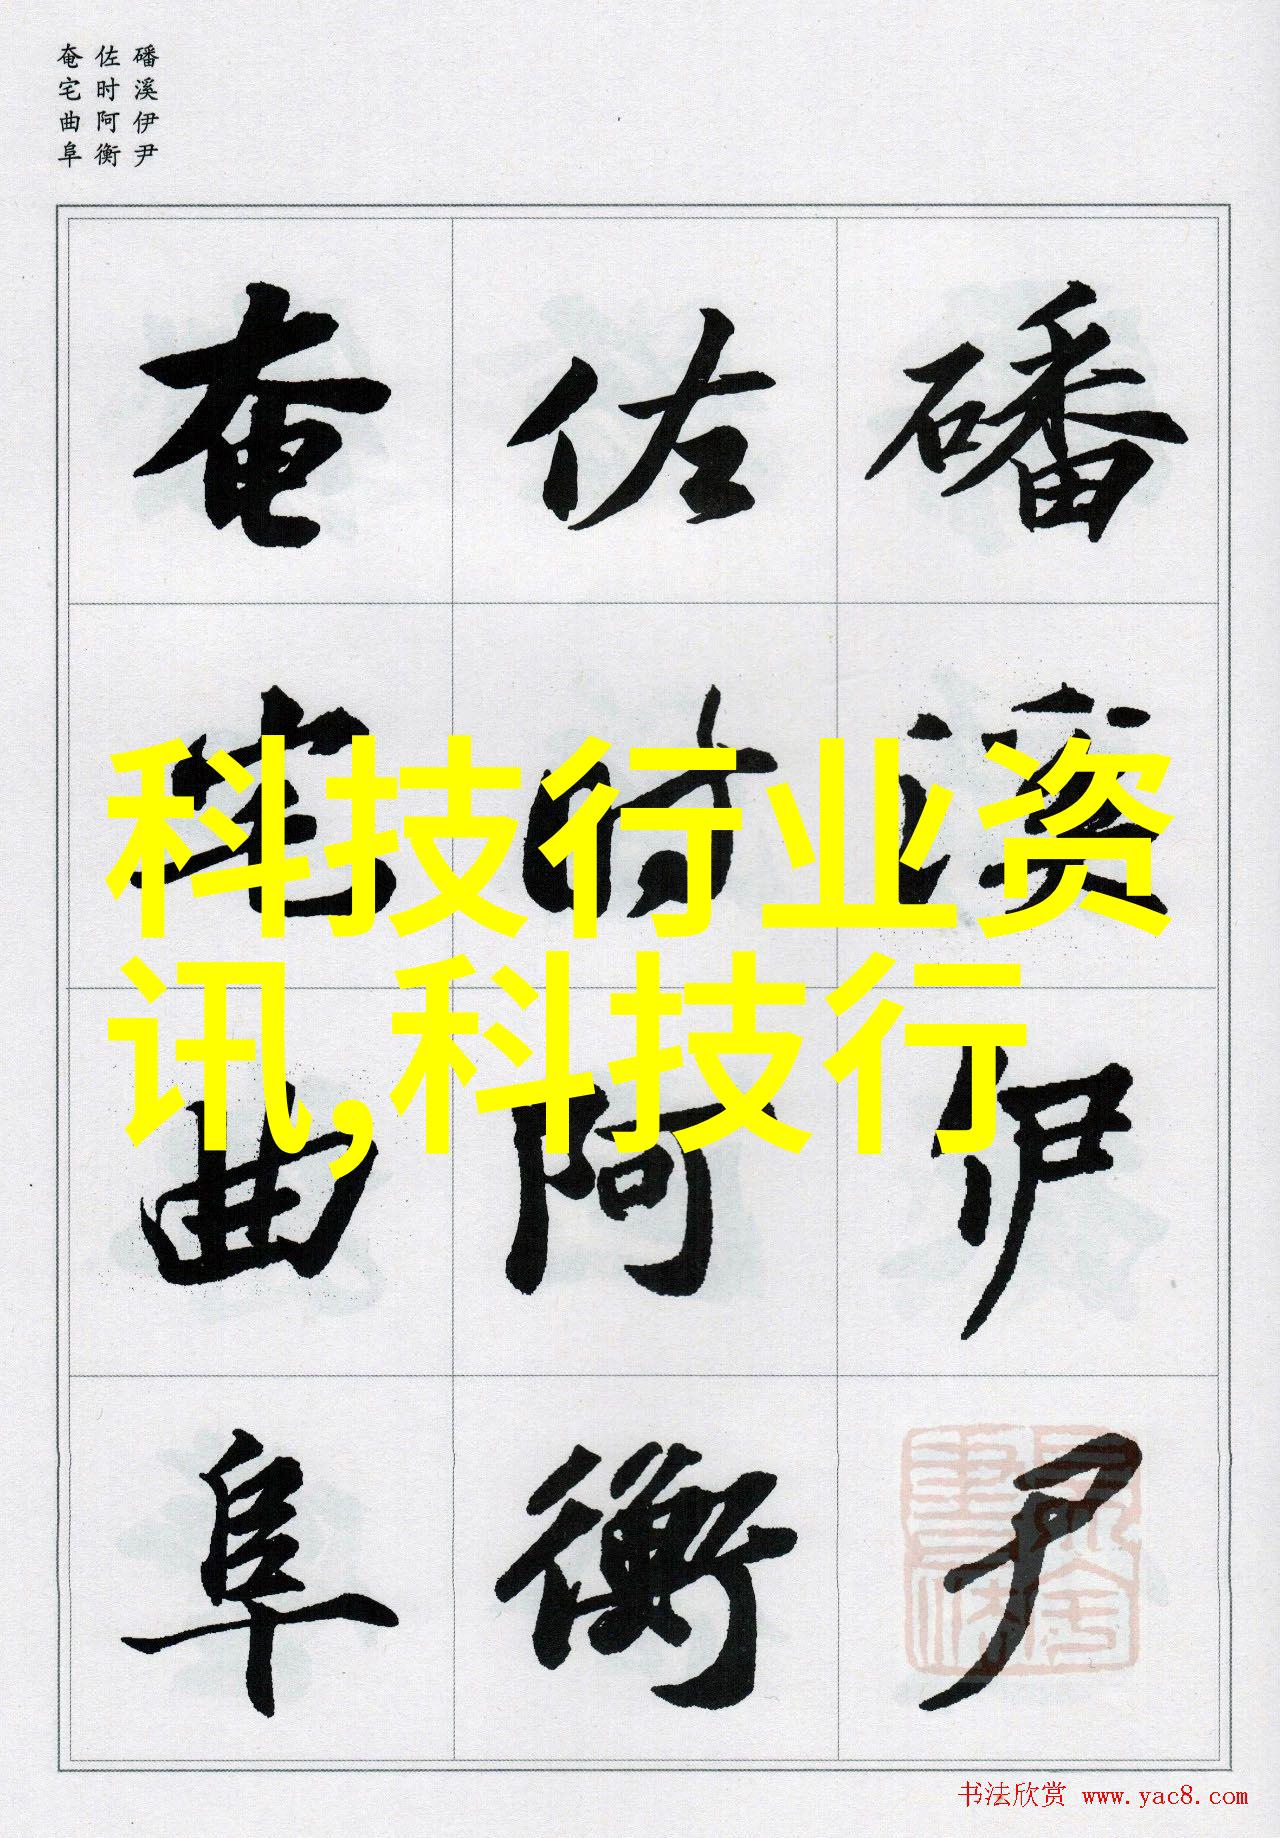 磻溪伊尹
佐时阿衡
奄宅曲阜
磻溪伊尹
佐时阿衡
奄宅曲阜
科技行业资
讯,科技行
书法欣赏 www.yac8.com